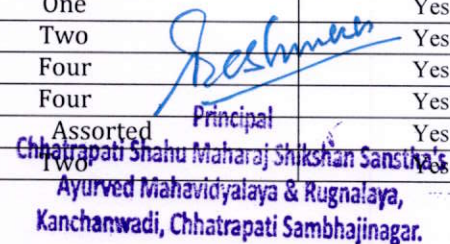 One Yes
Two Yes
Four Yes
Four Yes
Principal
Assorted Yes
Chhatrapati Shahu Maharaj Shikshan Sanstha's
Two Yes
Ayurved Mahavidyalaya & Rugnalaya,
Kanchanwadi, Chhatrapati Sambhajinagar.